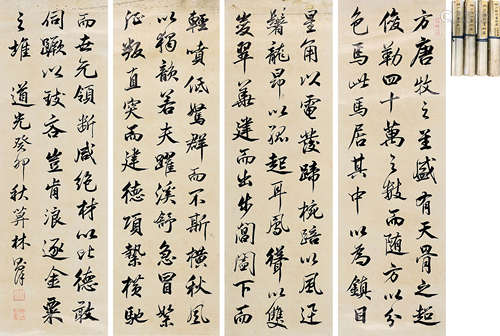 方唐牧之至盛有天骨之超
俊勒四十萬之數而隨方以分
色焉此馬居其中以為鎮目
星角以電發蹄椀踣以風迅
鬐龍昂以孤起耳鳳聳以雙
峻翠華建而出步閶闔下而
輕噴低駑群而不斯橫秋風
以獨歆若夫躍溪舒急冒絮
征叛直突而建德項縶橫馳
而世充領斷咸絕材以比德敢
伺蹶以致吝豈肯浪逐金粟
之堆 道光癸卯秋 林